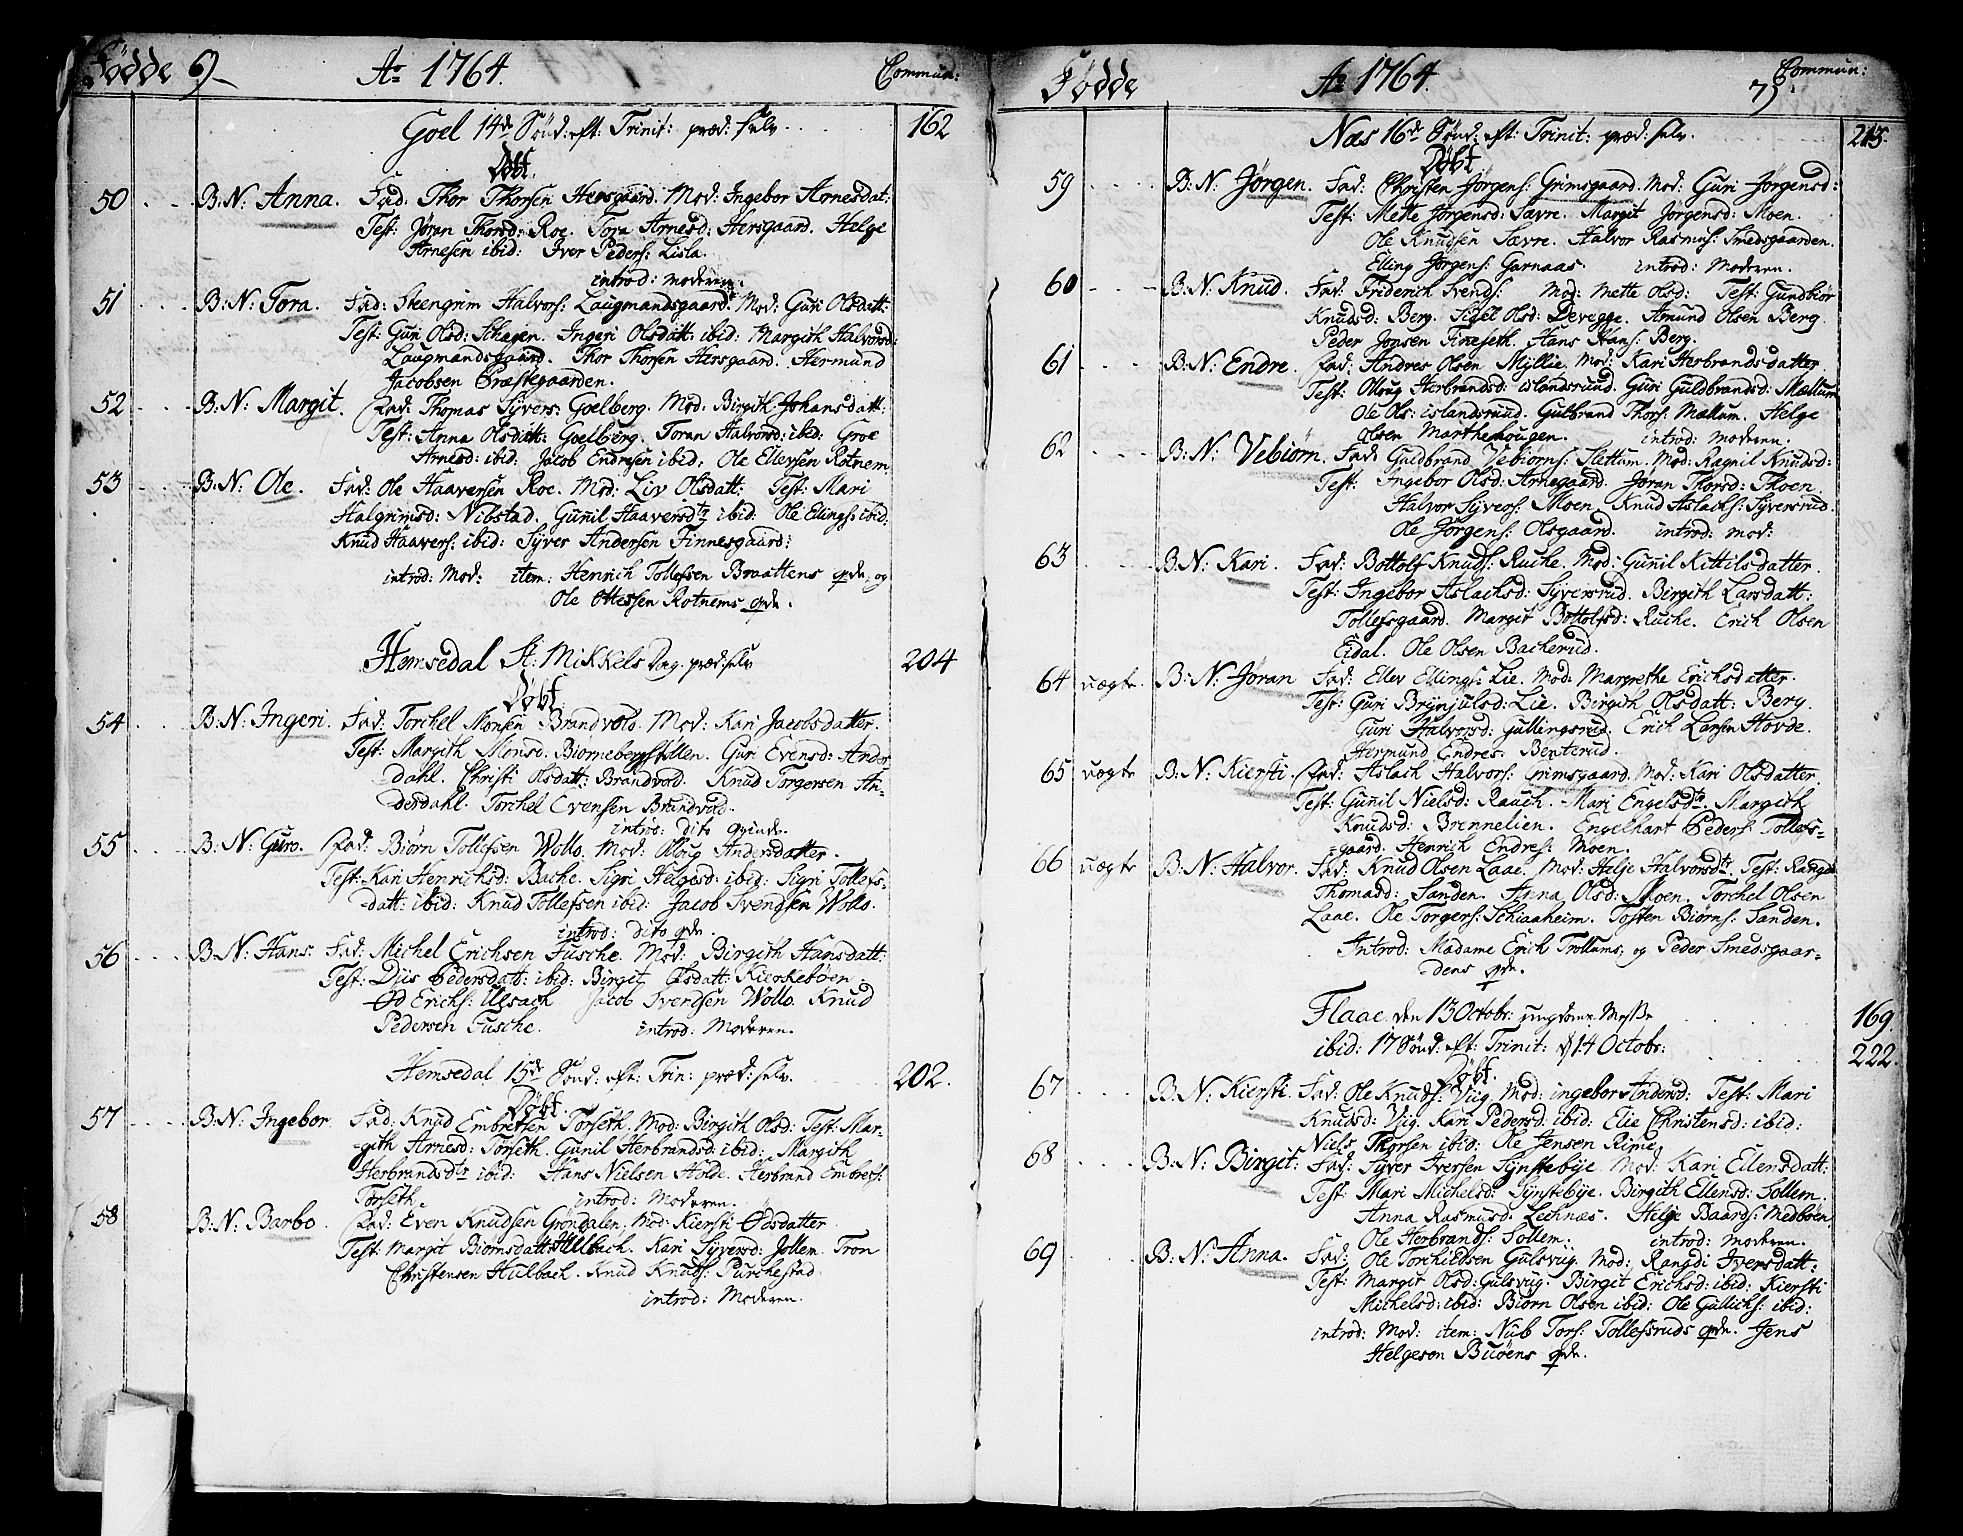 Fødde 6 Ao 1764. Commun:
Goel 14de Sönd: eft: Trinit: præd: selv. 162
Döbt.
50 B: N: Anna. Fad. Thor Thorsen Hersgaard. Mod: Ingebor Arnesdat:
Test: Jöran Thorsd: Roe. Tora Arnesd: Hersgaard. Helge
Arnesen ibid: Iver Peders: Lisla.
introd: moderen.
51 B: N: Tora. Fad: Steengrim Halvors: Laugmandsgaard. Mod: Guri Olsdatt:
Test: Guri Olsd: Schagen. Ingeri Olsdatt: ibid: Margith Halvorsd:
Laugmandsgaard. Thor Thorsen Hersgaard. Hermund
Jacobsen Præstegaarden.
52 B: N: Margit. Fad: Thomas Syvers: Goelberg. Mod: Birgith Johansdatt:
Test: Anna Olsdatt: Goelberg. Toran Halvorsd: ibid: Groe
Arnesd: ibid: Jacob Endresen ibid: Ole Ellevsen Rotnem
53 B: N: Ole. Fad: Ole Haaversen Roe. Mod: Liv Olsdatt: Test: Mari
Halgrimsd: Nibstad. Gunil Haaversdtr ibid: Ole Elings: ibid:
Knud Haavers: ibid: Syver Andersen Finnesgaard:
introd: Mod: item: Henrich Tollefsen Braattens qvde. og
Ole Ottessen Rotnems qvde.
Hemsedal St: Mikkels Dag. præd: selv 204
Döbt.
54 B: N: Ingeri. Fad: Torchel Monsen Brandvold. Mod: Kari Jacobsdatter.
Test: Margith Monsd: Biorneberg Guri Evensd: Ander
dahl. Christi Olsdatt: Brandvold. Knud Torgersen An-
derdahl. Torchel Evensen Brandvold.
introd: dito qvinde.
55 B: N: Guro. Fad: Biørn Tollefsen Wollo. Mod: Olloug Andersdatter.
Test: Kari Henrichsd: Bache. Sigri Helgesd: ibid: Sigri Tollefs-
datt: ibid: Knud Tollefsen ibid: Jacob Svendsen Wollo.
introd: dito qvde.
56 B: N: Hans. Fad: Michel Erichsen Fusche. Mod: Birgith Hansdatt:
Test: Dus Pedersdatt: ibid: Birgit Olsdatt: Kirckebøen.
Od Erichs: Ulsach Jacob Svendsen Wollo. Knud
Pedersen Fusche. introd: Moderen.
Hemsedal 15de Sönd: eft: Trin: præd: selv. 202.
Döbt.
57 B: N: Ingebor. Fad: Knud Embretsen Torseth. Mod: Birgith Olsd: Test: Mar-
gith Arnesd: Torseth. Gunil Herbrandsd: ibid: Margith
Herbrandsdtr ibid: Hans Nielsen Holde. Herbrand Embrets:
Torseth. introd: Moderen.
58 B: N: Barbo. Fad: Even Knudsen Gröndalen. Mod: Kiersti Odsdatter.
Test: Margit Biornsdatt: Hulbach. Kari Syversd: Jollem. Tron
Christensen Hulbach. Knud Knuds: Purchestad.
introd: Moderen.
Fødde Ao 1764. 75. Commun:
Næs 16de Sönd: eft: Trinit: præd: selv. 215.
Döbt
59 B: N: Jørgen. Fad: Christen Jørgens: Grimsgaard. Mod: Guri Jørgensd:
Test: Mette Jørgensd: Sævre. Margit Jorgensd: Moen.
Ole Knudsen Sævre. Halvor Rasmus: Smedsgaarden.
Elling Jørgens: Garnaas. introd: Moderen.
60 B: N: Knud. Fad: Friderich Svends: Mod: Mette Olsd: Test: Gundbiör
Knudsd: Berg. Sigel Olsd: Devegge. Amund Olsen Berg.
Peder Jonsen Fineseth. Hans Hans: Berg.
61 B: N: Endre. Fad: Andres Olsen Myllie. Mod: Kari Herbrandsdatter
Test: Oloug Herbrandsd: islandsruud. Guri Guldbrandsd: Mællum
Ole Ols: islandsruud. Gulbrand Thors: Mællum. Helge
Olsen Marthehougen. introd: Moderen.
62 B: N: Vebiørn. Fad: Guldbrand Vebiørns: Slettum. Mod: Ragnil Knudsd:
Test: Ingebor Olsd: Arnegaard. Jøran Thorsd: Thoen.
Halvor Syvers: Moen. Knud Aslachs: Syversrud.
Ole Jørgens: Olsgaard. introd: mod:
63 B: N: Kari. Fad: Bottolf Knuds: Ruche. Mod: Gunil Kittilsdatter.
Test: Ingebor Aslachsd: Syversrud. Birgith Larsdatt:
Tollefsgaard. Margit Bottolfsd: Ruche. Erich Olsen
Eidal. Ole Olsen Bacherud.
64 uægte B: N: Jøran Fad: Ellev Ellings: Lie. Mod: Margrethe Erichsdatter.
Test: Guri Brynjulsd: Lie. Birgith Olsdatt: Berg.
Guri Halvorsd: Gullingsrud. Erich Larsen Hovde.
Hermund Endres: Benterud.
65 uægte B: N: Kiersti. Fad: Aslach Halvors: Grimsgaard. Mod: Kari Olsdatter
Test: Gunil Nielsd: Rauch. Mari Engelsdtr. Margith
Knudsd: Brennelien. Engelhart Peders: Tollefs-
gaard. Henrich Endres: Moen.
66 uægte B: N: Halvor. Fad: Knud Olsen Laae. Mod: Helje Halvorsdtr. Test: Rangdi
Thomasd: Sanden. Anna Olsd: Moen. Torchel Olsen
Laae. Ole Torgers: Schiaaheim. Tosten Biørns: Sanden.
Introd: Madame Erich Trollums, og Peder Smedsgaar-
dens qvde.
Flaae den 13 Octobr: ungdoms Messe 169.
ibid: 17 Sönd: eft: Trinit: d 14 Octobr: 222.
Döbt.
67 B: N: Kiersti. Fad: Ole Knuds: Viig. Mod: ingebor Andersd: Test: Mari
Knudsd: Viig. Kari Pedersd: ibid: Elie Christensd: ibid:
Niels Thorsen ibid: Ole Jensen Rime.
68 B: N: Birgit: Fad: Syver Iversen Synstebye. Mod: Kari Ellensdatt:
Test: Mari Michelsd: Synstebye. Birgith Ellensd: Sollem.
Anna Rasmusd: Leehnæs. Helje Baards: Medbøen
Ole Herbrands: Sollem: introd: Moderen.
69 B: N: Anna. Fad: Ole Torchildsen Gulsvug. Mod: Rangdi Iversdatt:
Test: Margit Olsd: Gulsvug. Birgit Erichsd: ibid: Kiersti
Michelsd: ibid: Biørn Olsen ibid: Ole Gullichs: ibid:
introd: Mod: item: Nub Tors: Tollefsruds qvde. Jens
Helgesøn Buöens qvde.